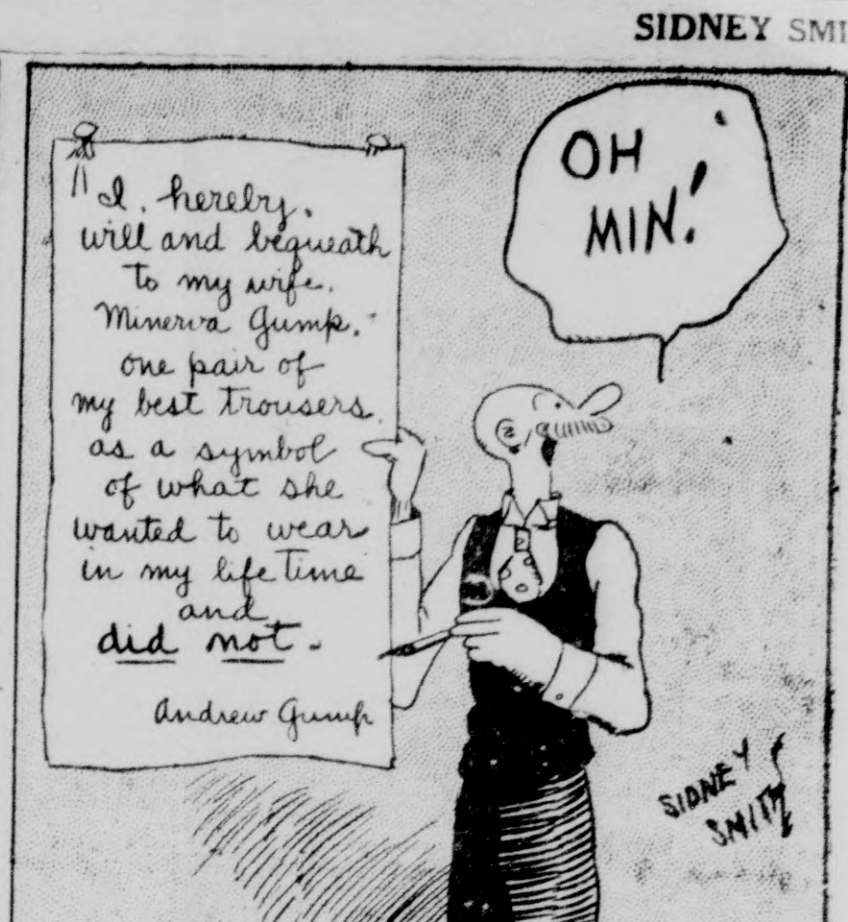 SIDNEY SMI
"I, hereby,
will and bequeath
to my wife,
Minerva Gump,
one pair of
my best trousers
as a symbol
of what she
wanted to wear
in my life time
and
did not.
Andrew Gump
OH
MIN!
SIDNEY
SMITH